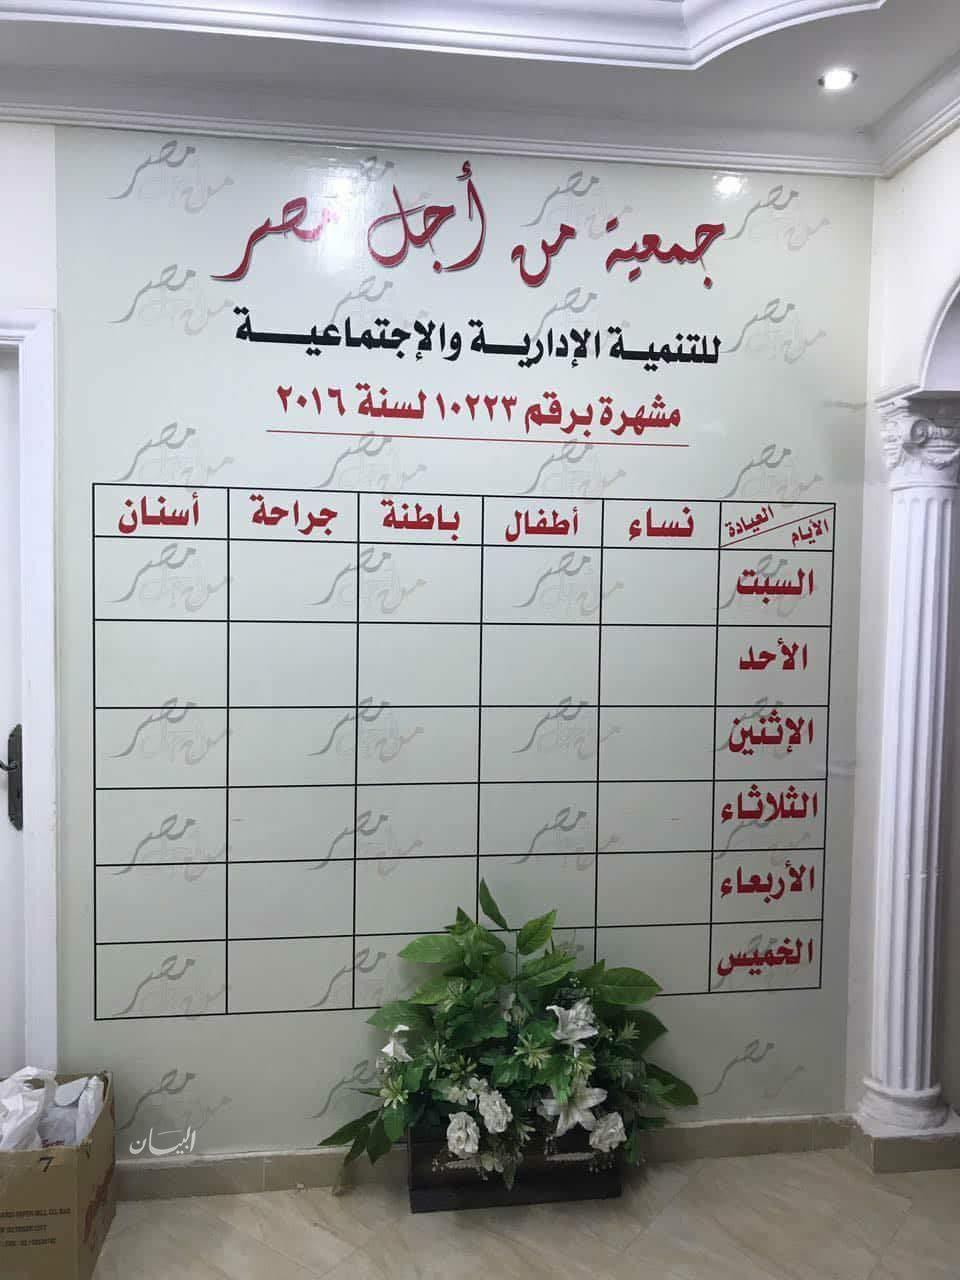 جمعية من أجل مصر
للتنمية الإدارية والإجتماعية
مشهرة برقم ١٠٢٢٣ لسنة ٢٠١٦
العيادة
الأيام
نساء
أطفال
باطنة
جراحة
أسنان
السبت
الأحد
الإثنين
الثلاثاء
الأربعاء
الخميس
البيان
7